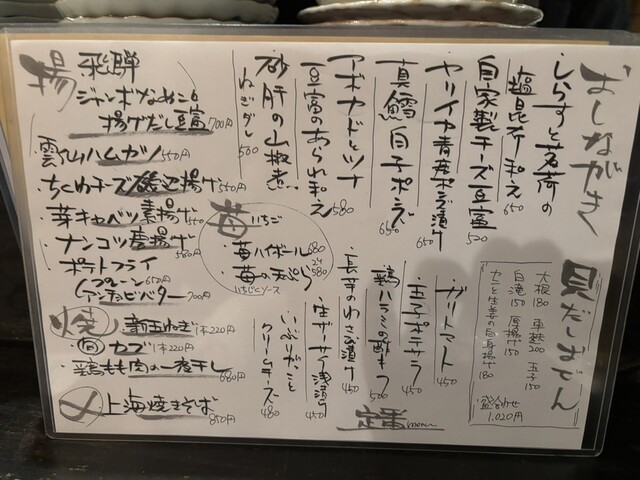 おしながき
しらすと茗荷の
塩昆布和え 650
自家製チーズ豆富 520
ヤリイカ青唐ポン酢漬け 650
真鱈白子ポン酢 650
アボカドとツナ
豆富のあられ和え 580
砂肝の山椒煮
ねぎダレ 500
貝だしおでん
大根 180 車麩 200 玉子 150
白滝 150 厚揚げ 150
カニと生姜の自身揚げ 180
盛合わせ 1,020円
定番menu
ガリトマト 450
玉子ポテサラ 450
鶏ハラミの酢もつ 500
長芋のわさび漬け 450
生ザーサイ浅漬け 450
いぶりがっこと
クリームチーズ 480
苺 いちご
苺ハイボール 680
苺の天ぷら 2ケ 580
いちじくソース
揚
飛騨
ジャンボなめこの
揚げだし豆富 700円
雲仙ハムカツ 550円
ちくわチーズ磯辺揚げ 550円
芽キャベツ素揚げ 550
ナンコツ唐揚げ 580円
ポテトフライ
プレーン 650円
アンチョビバター 700円
焼
新玉ねぎ 1本220円
カブ 1本220円
鶏もも肉の一夜干し 680円
〆
上海焼きそば 850円